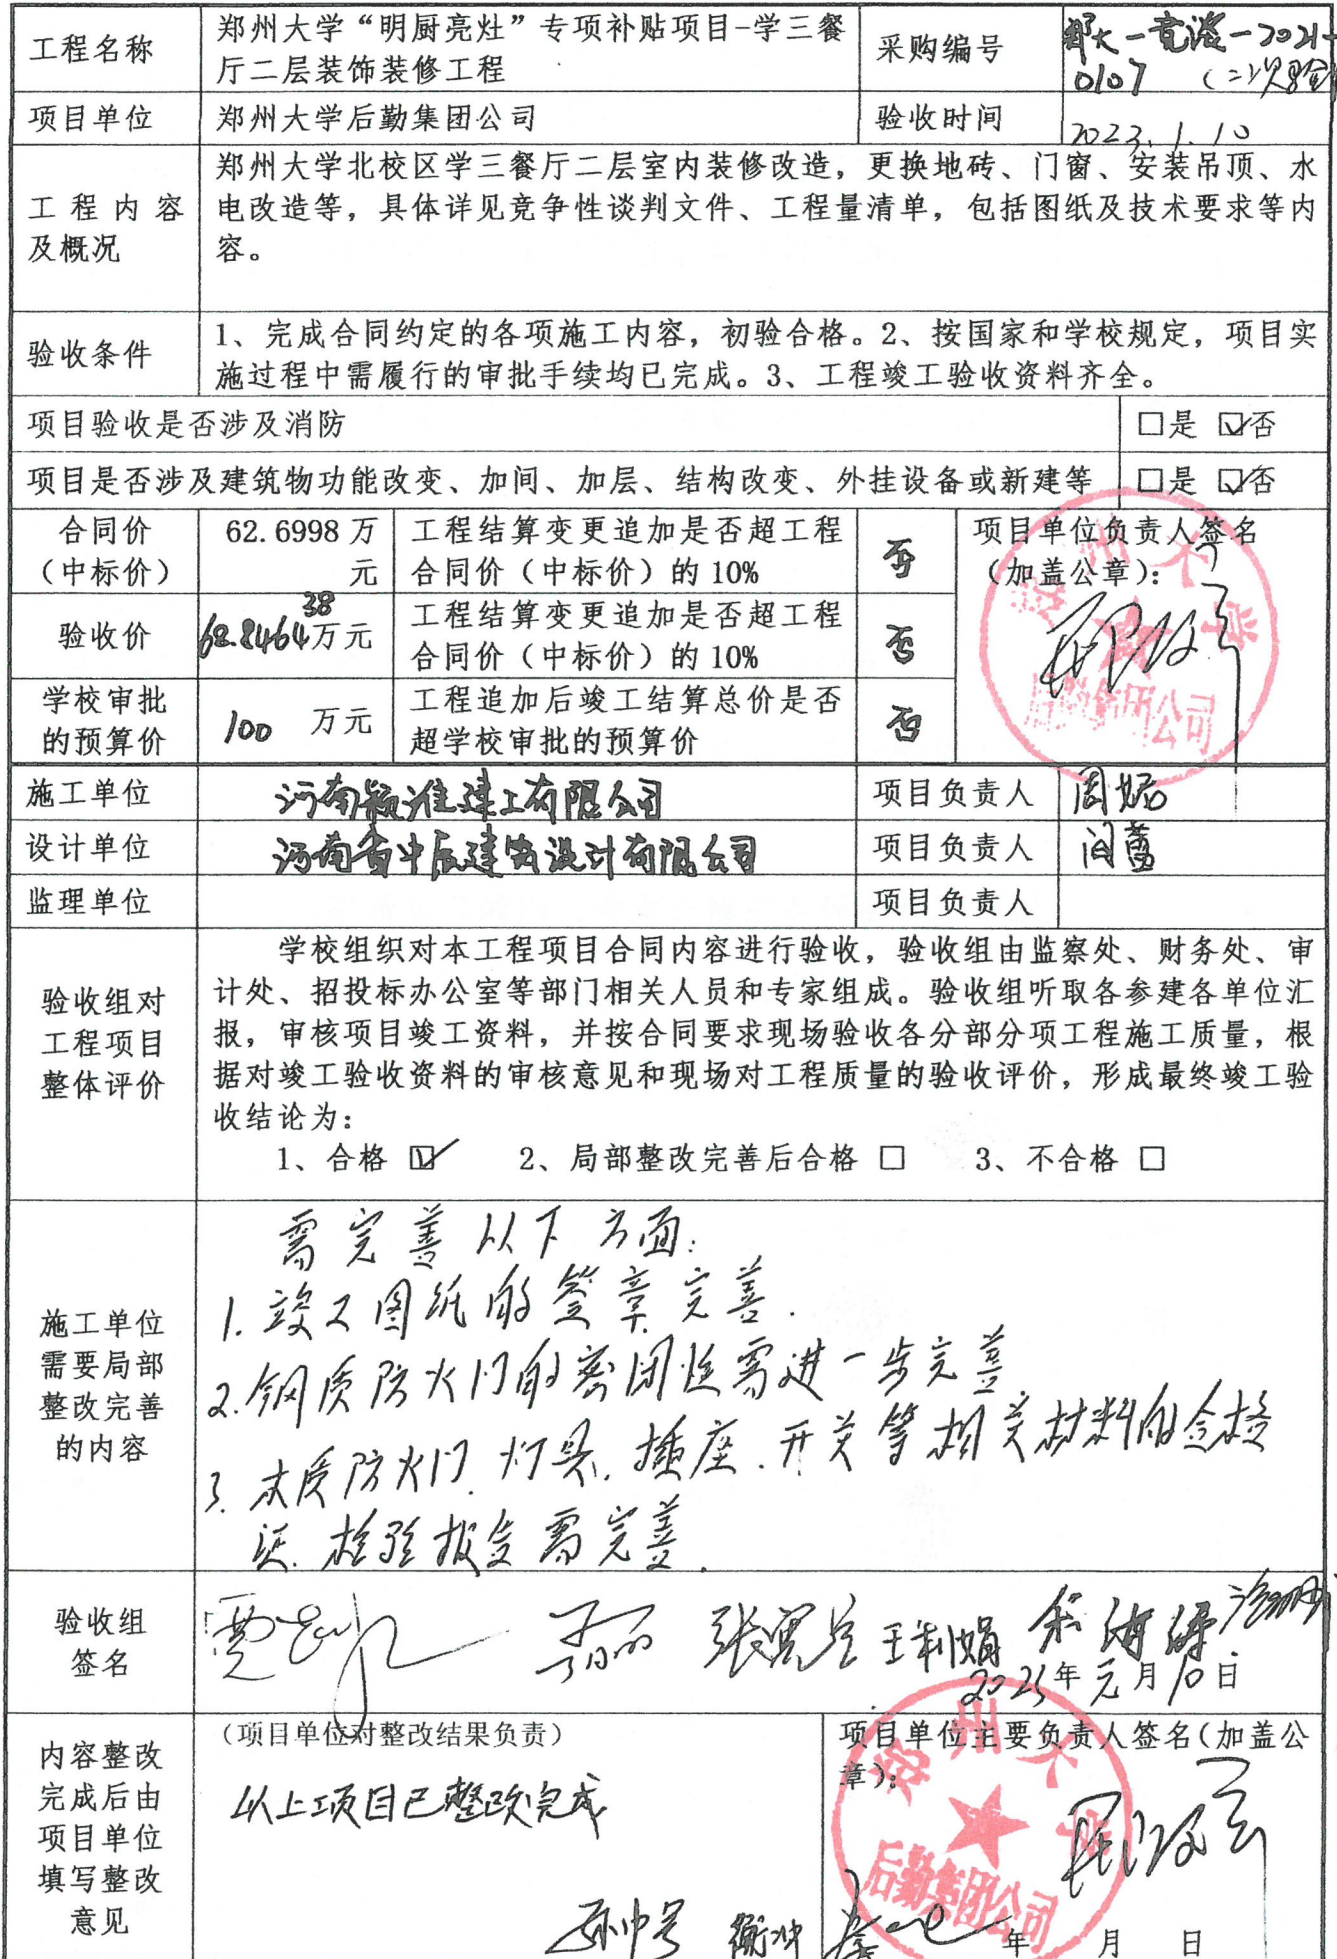 工程名称
郑州大学“明厨亮灶”专项补贴项目-学三餐
厅二层装饰装修工程
采购编号
郑大-竞谈-2021-
0107 (二次验
项目单位
郑州大学后勤集团公司
验收时间
2023.1.10
工程内容
及概况
郑州大学北校区学三餐厅二层室内装修改造，更换地砖、门窗、安装吊顶、水
电改造等，具体详见竞争性谈判文件、工程量清单，包括图纸及技术要求等内
容。
验收条件
1、完成合同约定的各项施工内容，初验合格。2、按国家和学校规定，项目实
施过程中需履行的审批手续均已完成。3、工程竣工验收资料齐全。
项目验收是否涉及消防
□是 ☑否
项目是否涉及建筑物功能改变、加间、加层、结构改变、外挂设备或新建等
□是 ☑否
合同价
（中标价）
62.6998 万
元
工程结算变更追加是否超工程
合同价（中标价）的 10%
否
项目单位负责人签名
（加盖公章）：
郑州大学
后勤集团公司
验收价
62.846438万元
工程结算变更追加是否超工程
合同价（中标价）的 10%
否
学校审批
的预算价
100 万元
工程追加后竣工结算总价是否
超学校审批的预算价
否
施工单位
河南颍淮建工有限公司
项目负责人
周娇
设计单位
河南省中辰建筑设计有限公司
项目负责人
闫蕾
监理单位
项目负责人
验收组对
工程项目
整体评价
学校组织对本工程项目合同内容进行验收，验收组由监察处、财务处、审
计处、招投标办公室等部门相关人员和专家组成。验收组听取各参建各单位汇
报，审核项目竣工资料，并按合同要求现场验收各分部分项工程施工质量，根
据对竣工验收资料的审核意见和现场对工程质量的验收评价，形成最终竣工验
收结论为：
1、合格 ☑ 2、局部整改完善后合格 □ 3、不合格 □
施工单位
需要局部
整改完善
的内容
需完善以下方面：
1. 竣工图纸的签章完善.
2. 钢质防火门的密闭性需进一步完善
3. 木质防火门、灯具、插座、开关等相关材料的合格
证、检验报告需完善.
验收组
签名
张宪兵 王利娟
2023年元月10日
内容整改
完成后由
项目单位
填写整改
意见
（项目单位对整改结果负责）
以上项目已整改完成
项目单位主要负责人签名（加盖公
章）：
郑州大学
后勤集团公司
年 月 日